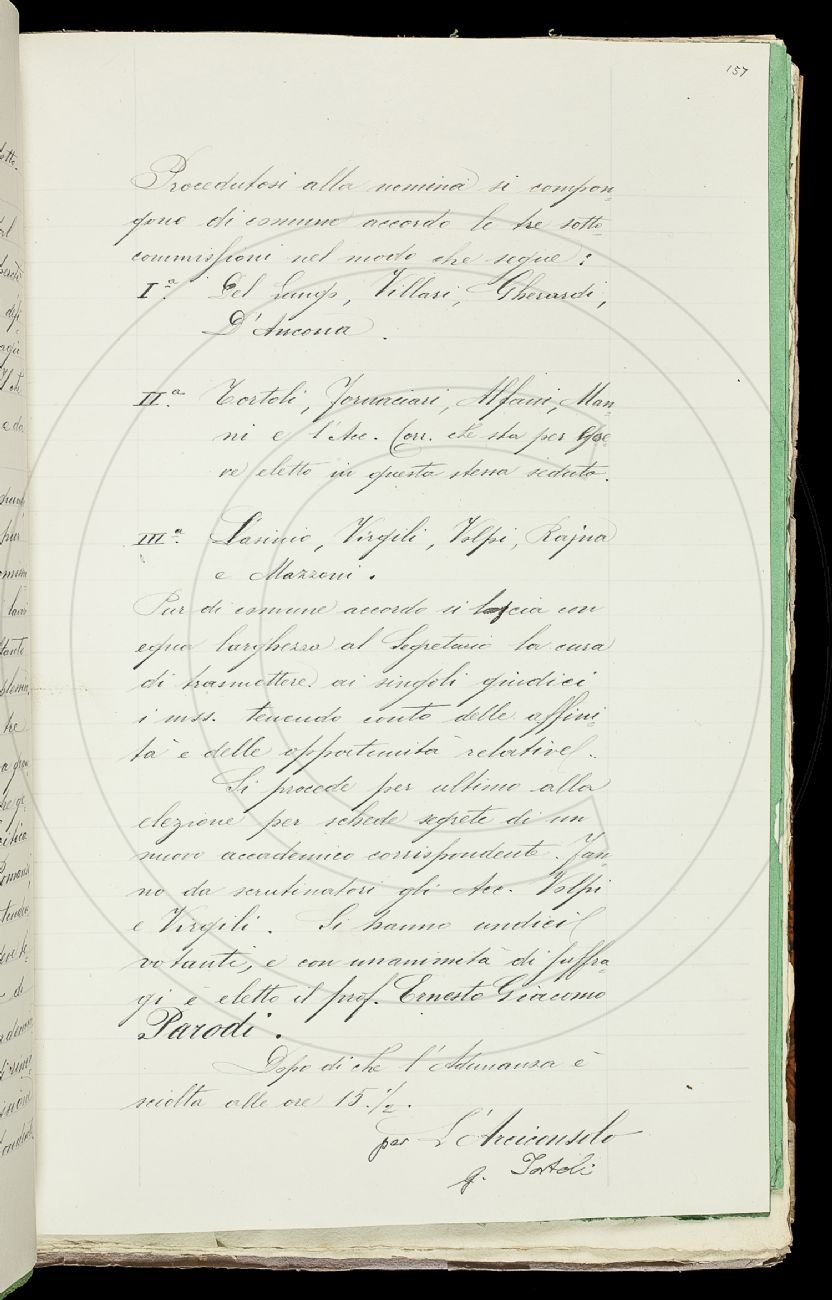 157
Procedutosi alla nomina si compon-
gono di comune accordo le tre sotto-
commissioni nel modo che segue:
Iª. Del Lungo, Villari, Gherardi,
D'Ancona.
IIª. Tortoli, Fornaciari, Alfani, Man-
ni e l'Acc. Corr. che sta per
eletto in questa stessa seduta.
IIIª. Lasinio, Virgili, Volpi, Rajna
e Mazzoni.
Pur di comune accordo si lascia con
equa larghezza al Segretario la cura
di trasmettere ai singoli giudici
i mss. tenendo conto delle affini-
tà e delle opportunità relative.
Si procede per ultimo alla
elezione per schede segrete di un
nuovo accademico corrispondente. Fan-
no da scrutinatori gli Acc. Volpi
e Virgili. Si hanno undici
votanti, e con unanimità di suffra-
gi è eletto il prof. Ernesto Giacomo
Parodi.
Dopo di che l'Adunanza è
sciolta alle ore 15 1/2.
per L'Arciconsolo
G. Tortoli